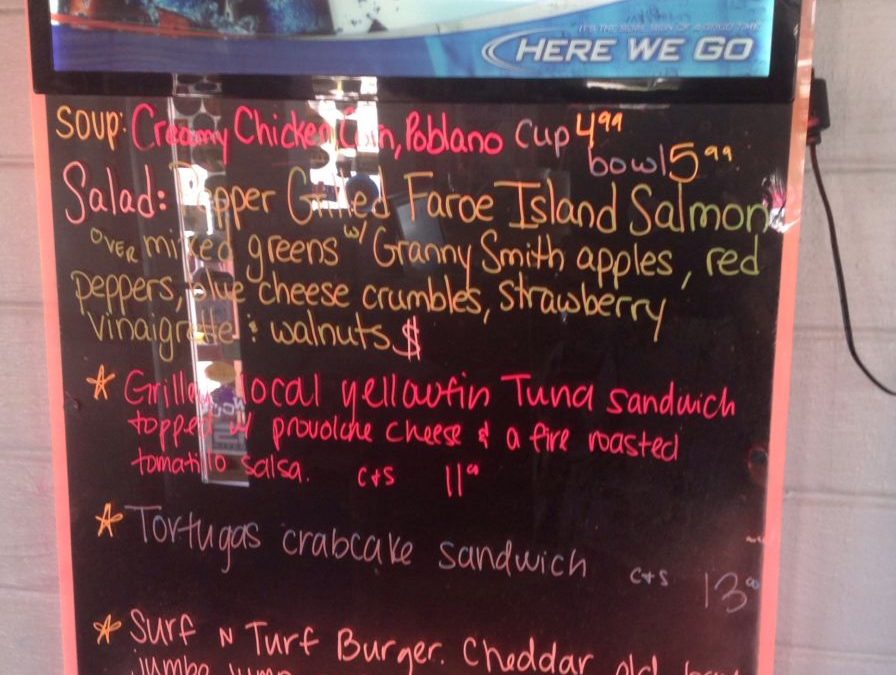 IT'S THE SURE SIGN OF A GOOD TIME
HERE WE GO
Soup: Creamy Chicken, Corn, Poblano cup 4⁹⁹
bowl 5⁹⁹
Salad: Pepper Grilled Faroe Island Salmon
over mixed greens w/ Granny Smith apples, red
peppers, blue cheese crumbles, strawberry
vinaigrette & walnuts $
☆ Grilled local yellowfin Tuna sandwich
topped w/ provolone cheese & a fire roasted
tomatillo salsa. c+s 11⁰⁰
☆ Tortugas crabcake sandwich c+s 13⁰⁰
☆ Surf N Turf Burger. Cheddar, old bay
jumbo lump